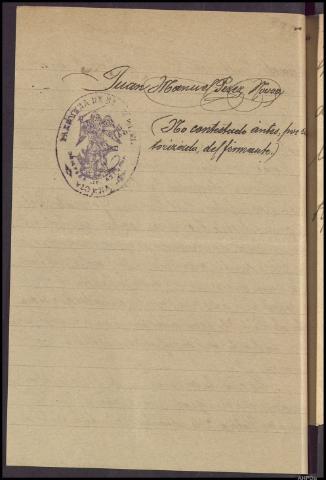 Juan Manuel Perez Novoa
(No contestado antes, por
del firmante.)
PARROQUIA DE